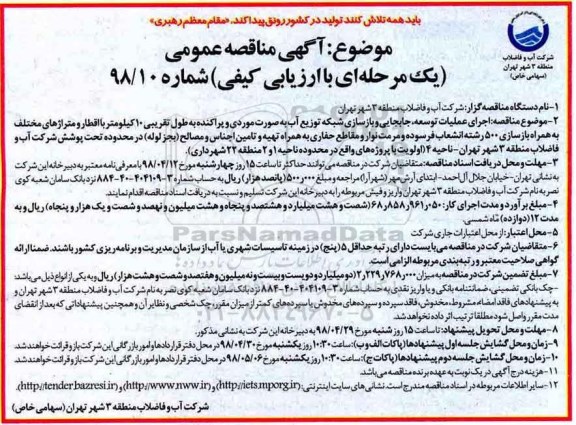 باید همه تلاش کنند تولید در کشور رونق پیدا کند. «مقام معظم رهبری»
شرکت آب و فاضلاب
منطقه ۳ شهر تهران
(سهامی خاص)
موضوع: آگهی مناقصه عمومی
(یک مرحله‌ای با ارزیابی کیفی) شماره ۹۸/۱۰
۱-نام دستگاه مناقصه گزار: شرکت آب و فاضلاب منطقه ۳ شهر تهران
۲-موضوع مناقصه: اجرای عملیات توسعه، جابجایی و بازسازی شبکه توزیع آب به صورت موردی و پراکنده به طول تقریبی ۱۰ کیلومتر با اقطار و متراژهای مختلف
به همراه بازسازی ۵۰۰ رشته انشعاب فرسوده و مرمت نوار و مقاطع حفاری به همراه تهیه و تامین اجناس و مصالح (بجز لوله) در محدوده تحت پوشش شرکت آب و
فاضلاب منطقه ۳ شهر تهران - ناحیه ۴ (اولویت با پروژه‌های واقع در محدوده ناحیه ۱ و ۲ منطقه ۲۲ شهرداری).
۳-مهلت و محل دریافت اسناد مناقصه: متقاضیان شرکت در مناقصه می‌توانند حداکثر تا ساعت ۱۵ روز چهارشنبه مورخ ۹۸/۰۴/۱۲ با معرفی نامه معتبر به دبیرخانه این شرکت
به نشانی تهران - خیابان جلال آل احمد - ابتدای آرش مهر (شهرآرا) مراجعه و مبلغ ۵۰۰,۰۰۰ (پانصد هزار) ریال به حساب شماره ۳-۴۰۴۱۰۹-۴۰-۸۸۴ نزد بانک سامان شعبه کوی
نصر به نام شرکت آب و فاضلاب منطقه ۳ شهر تهران واریز و فیش مربوطه را به دبیرخانه این شرکت تسلیم و نسبت به دریافت اسناد مناقصه اقدام نمایند.
۴-مبلغ برآورد و مدت اجرای کار: ۶۸,۸۵۸,۹۶۱,۰۵۰ (شصت و هشت میلیارد و هشتصد و پنجاه و هشت میلیون و نهصد و شصت و یک هزار و پنجاه) ریال و به
مدت ۱۲ (دوازده) ماه شمسی.
۵-محل اعتبار: از محل اعتبارات جاری شرکت
۶-متقاضیان شرکت در مناقصه می‌بایست دارای رتبه حداقل ۵ (پنج) در زمینه تاسیسات شهری یا آب از سازمان مدیریت و برنامه ریزی کشور باشند. ضمنا ارائه
گواهی صلاحیت معتبر و رتبه‌بندی مربوطه الزامی است.
۷-مبلغ تضمین شرکت در مناقصه به میزان ۲,۲۲۹,۷۶۸,۰۰۰ (دو میلیارد و دویست و بیست و نه میلیون و هفتصد و شصت و هشت هزار) ریال و به یکی از انواع ذیل می‌باشد:
-چک بانکی تضمینی، ضمانتنامه بانکی و یا واریز نقدی به حساب شماره ۳-۴۰۴۱۰۹-۴۰-۸۸۴ نزد بانک سامان شعبه کوی نصر به نام شرکت آب و فاضلاب منطقه ۳ شهر تهران و
به پیشنهادهای فاقد امضاء مشروط، مخدوش، فاقد سپرده و سپرده‌های مخدوش یا سپرده‌های کمتر از میزان مقرر، چک شخصی و نظایر آن و همچنین پیشنهاداتی که بعد از انقضای
مدت مقرر واصل شود مطلقا ترتیب اثر داده نخواهد شد.
۸-مهلت و محل تحویل پیشنهاد: تا ساعت ۱۵ روز شنبه مورخ ۹۸/۰۴/۲۹ به دبیرخانه این شرکت به نشانی مذکور.
۹-زمان و محل گشایش جلسه اول پیشنهادها (پاکات الف و ب): ساعت ۱۰:۳۰ روز یکشنبه مورخ ۹۸/۰۴/۳۰ در محل دفتر قراردادها و امور بازرگانی این شرکت باز و قرائت خواهند شد.
۱۰-زمان و محل گشایش جلسه دوم پیشنهادها (پاکات ج): ساعت ۱۰:۳۰ روز یکشنبه مورخ ۹۸/۰۵/۰۶ در محل دفتر قراردادها و امور بازرگانی این شرکت باز و قرائت خواهند شد.
۱۱-هزینه درج آگهی در یک نوبت به عهده برنده مناقصه می‌باشد.
۱۲-سایر اطلاعات مربوطه در اسناد مناقصه مندرج است. نشانی‌های سایت اینترنتی: (http://iets.mporg.ir) و (http://www.nww.ir) و (http://tender.bazresi.ir)
شرکت آب و فاضلاب منطقه ۳ شهر تهران (سهامی خاص)
ParsNamadData
۰۲۱-۸۸۳۴۹۶۷۰-۵